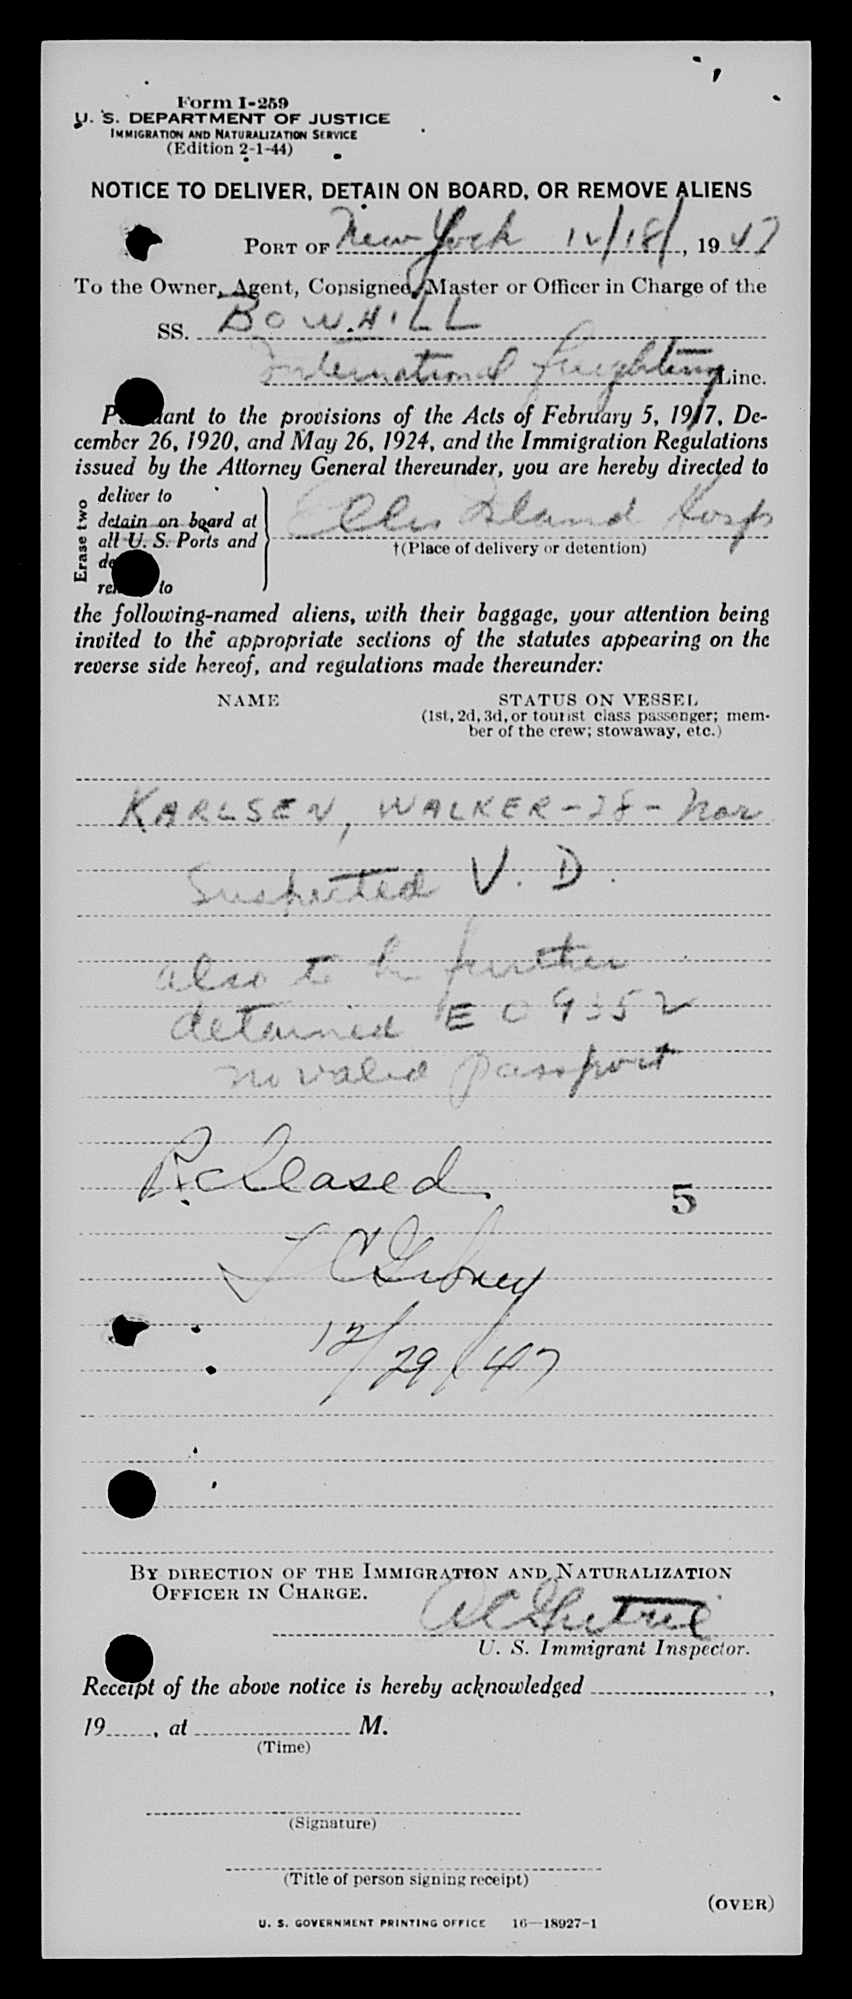 Form I-259
U. S. DEPARTMENT OF JUSTICE
IMMIGRATION AND NATURALIZATION SERVICE
(Edition 2-1-44)
NOTICE TO DELIVER, DETAIN ON BOARD, OR REMOVE ALIENS
PORT OF New York 12/18/, 1947
To the Owner, Agent, Consignee, Master or Officer in Charge of the
SS. BOWHILL
International Freighting Line.
Pursuant to the provisions of the Acts of February 5, 1917, De-
cember 26, 1920, and May 26, 1924, and the Immigration Regulations
issued by the Attorney General thereunder, you are hereby directed to
Erase two
deliver to
detain on board at
all U. S. Ports and
to
Ellis Island Hosp
†(Place of delivery or detention)
the following-named aliens, with their baggage, your attention being
invited to the appropriate sections of the statutes appearing on the
reverse side hereof, and regulations made thereunder:
NAME STATUS ON VESSEL
(1st, 2d, 3d, or tourist class passenger; mem-
ber of the crew; stowaway, etc.)
KARLSEN, WALKER - 28 - Nor
Suspected V. D.
also to be further
detained E O 9352
no valid passport
Released
5
12/29/47
BY DIRECTION OF THE IMMIGRATION AND NATURALIZATION
OFFICER IN CHARGE.
U. S. Immigrant Inspector.
Receipt of the above notice is hereby acknowledged ,
19 , at M.
(Time)
(Signature)
(Title of person signing receipt)
(OVER)
U. S. GOVERNMENT PRINTING OFFICE 16—18927-1